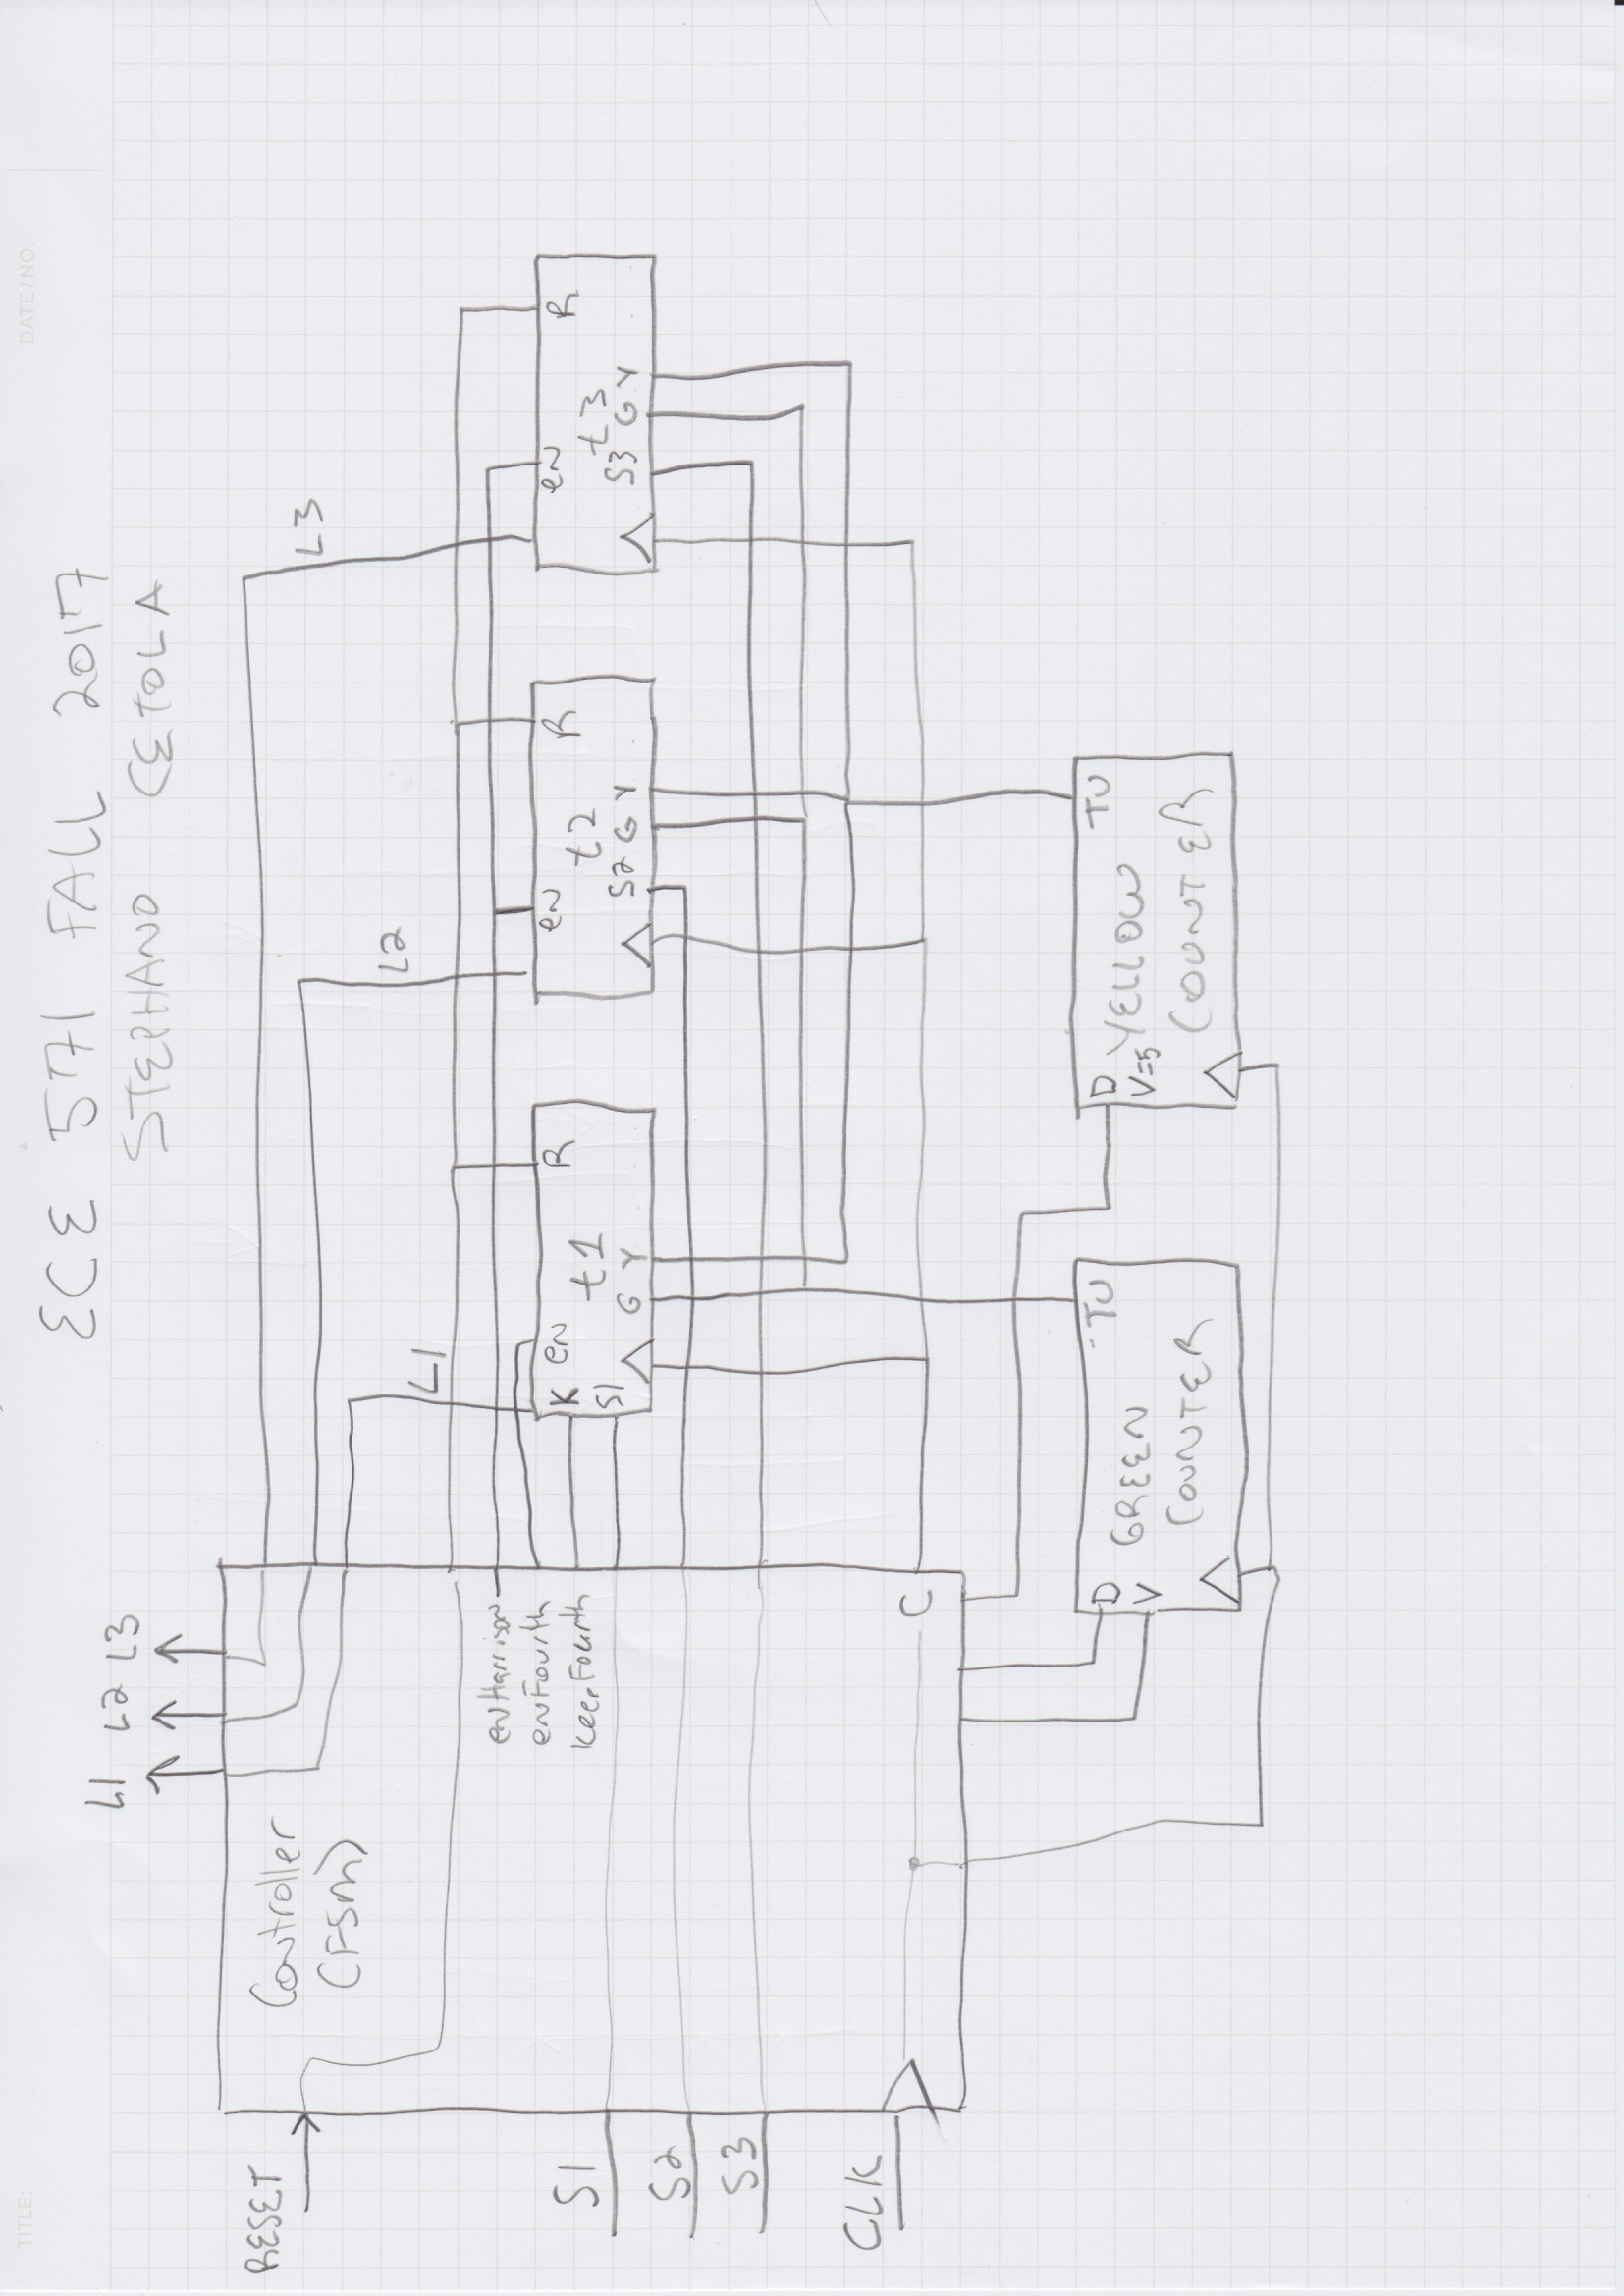 TITLE:
DATE/NO.
ECE 571 FALL 2017
STEPHANO CETOLA
L1 L2 L3
RESET
Controller
(FSM)
L3
L2
L1
enHarrison
enFourth
KeepFourth
S1
S2
S3
CLK
C
K en R
t1
S1 G Y
en R
t2
S2 G Y
en R
t3
S3 G Y
D TU
V GREEN
COUNTER
D TU
V=5 YELLOW
COUNTER